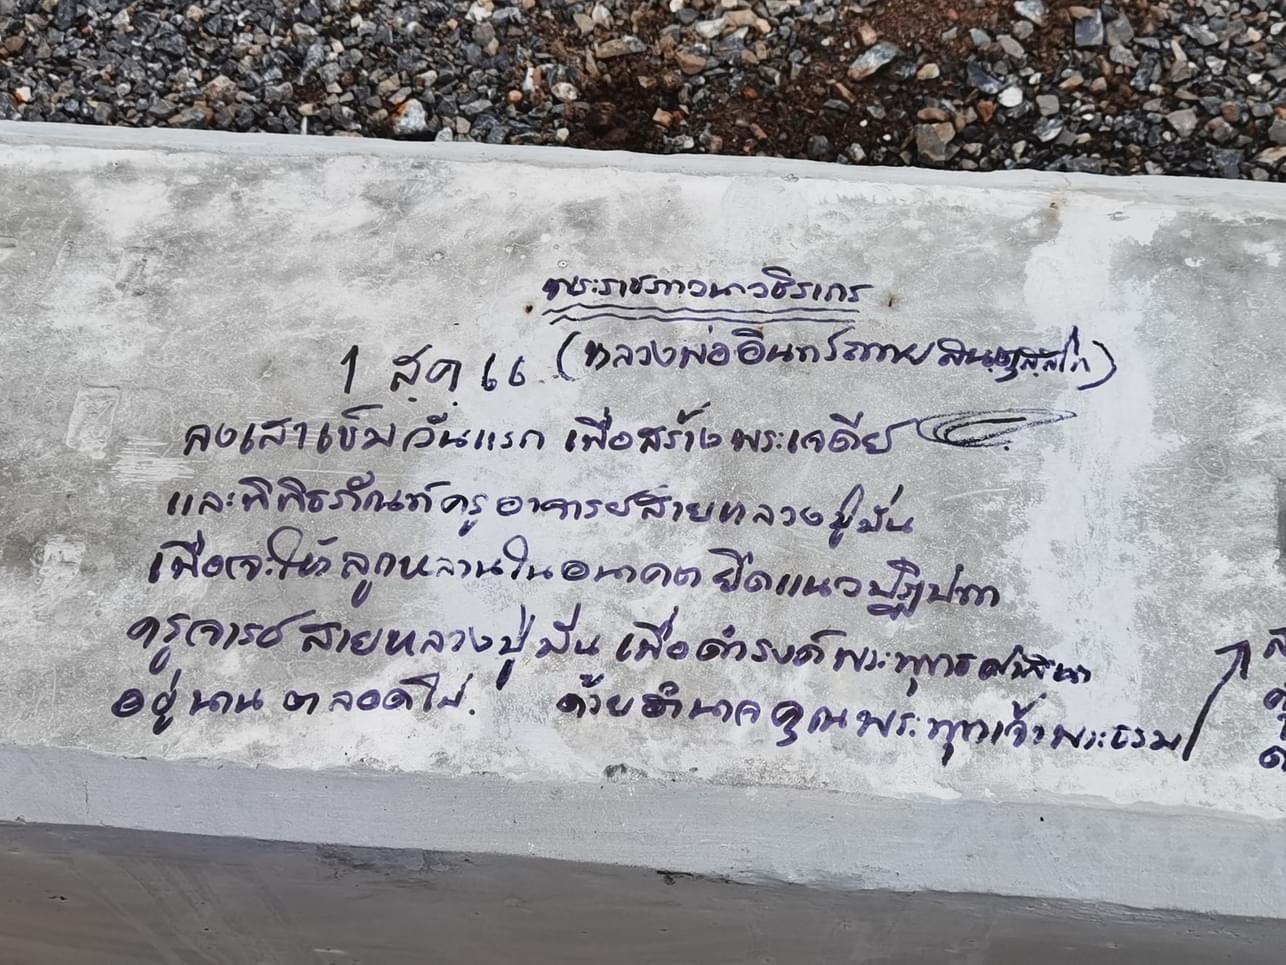 พระราชภาวนาวชิรากร
1 ส.ค. 66 (หลวงพ่ออินทร์ถวาย สันตุสสโก)
ลงเสาเข็มวันแรก เพื่อสร้างพระเจดีย์
และพิพิธภัณฑ์ครูอาจารย์สายหลวงปู่มั่น
เพื่อจะให้ลูกหลานในอนาคตยึดแนวปฏิปทา
ครูจารย์สายหลวงปู่มั่น เพื่อดำรงค์พระพุทธศาสนา
อยู่นานตลอดไป. ด้วยอำนาจคุณพระพุทเจ้าพระธรรม